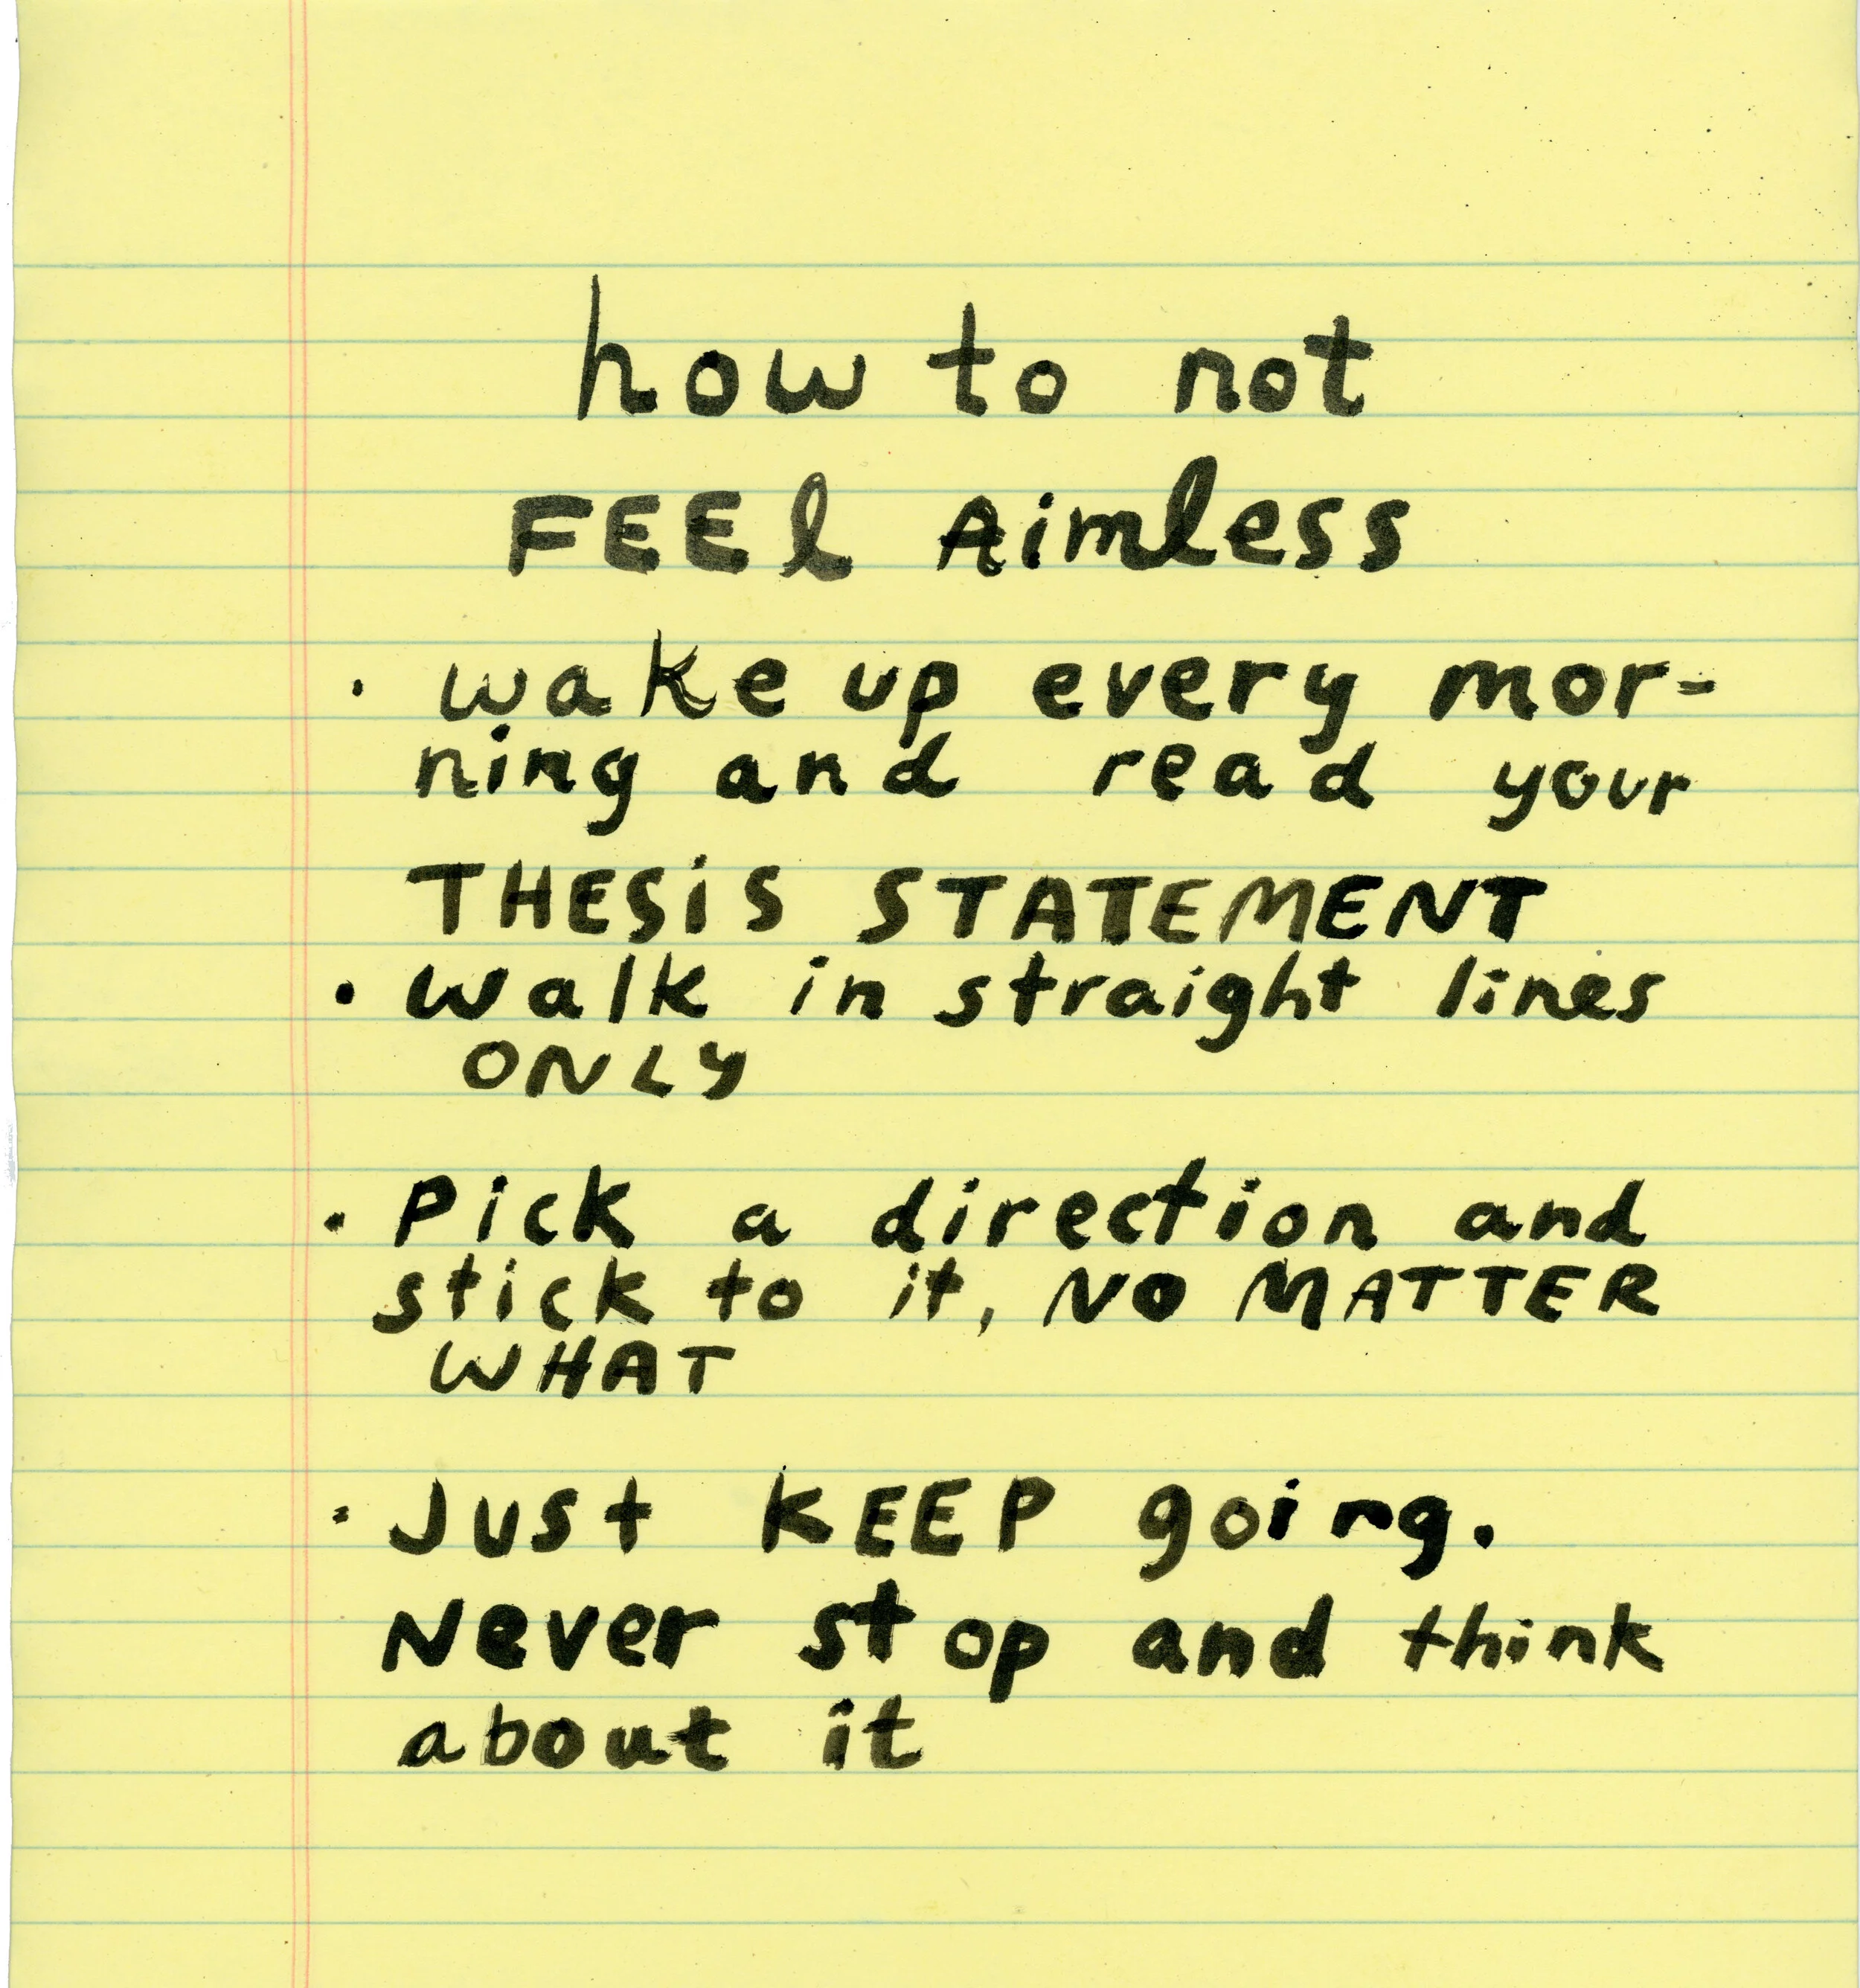 how to not
FEEl Aimless
· wake up every mor-
ning and read your
THESiS STATEMENT
· walk in straight lines
ONLY
· Pick a direction and
stick to it, NO MATTER
WHAT
· Just KEEP going.
Never stop and think
about it